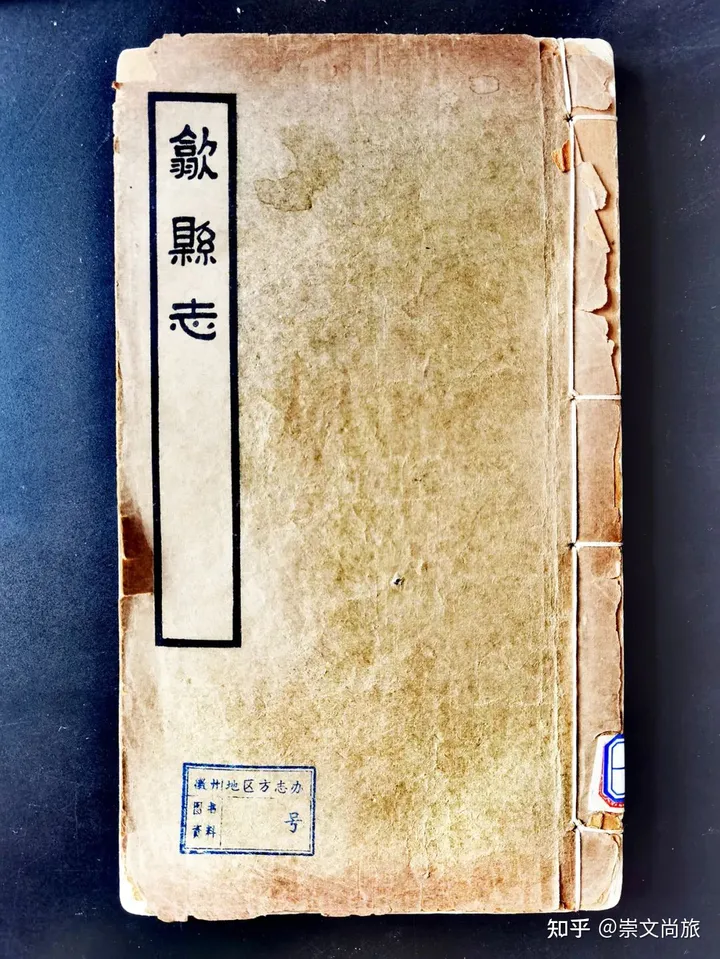 歙縣志
徽州地区方志办
图书
资料
号
知乎 @崇文尚旅